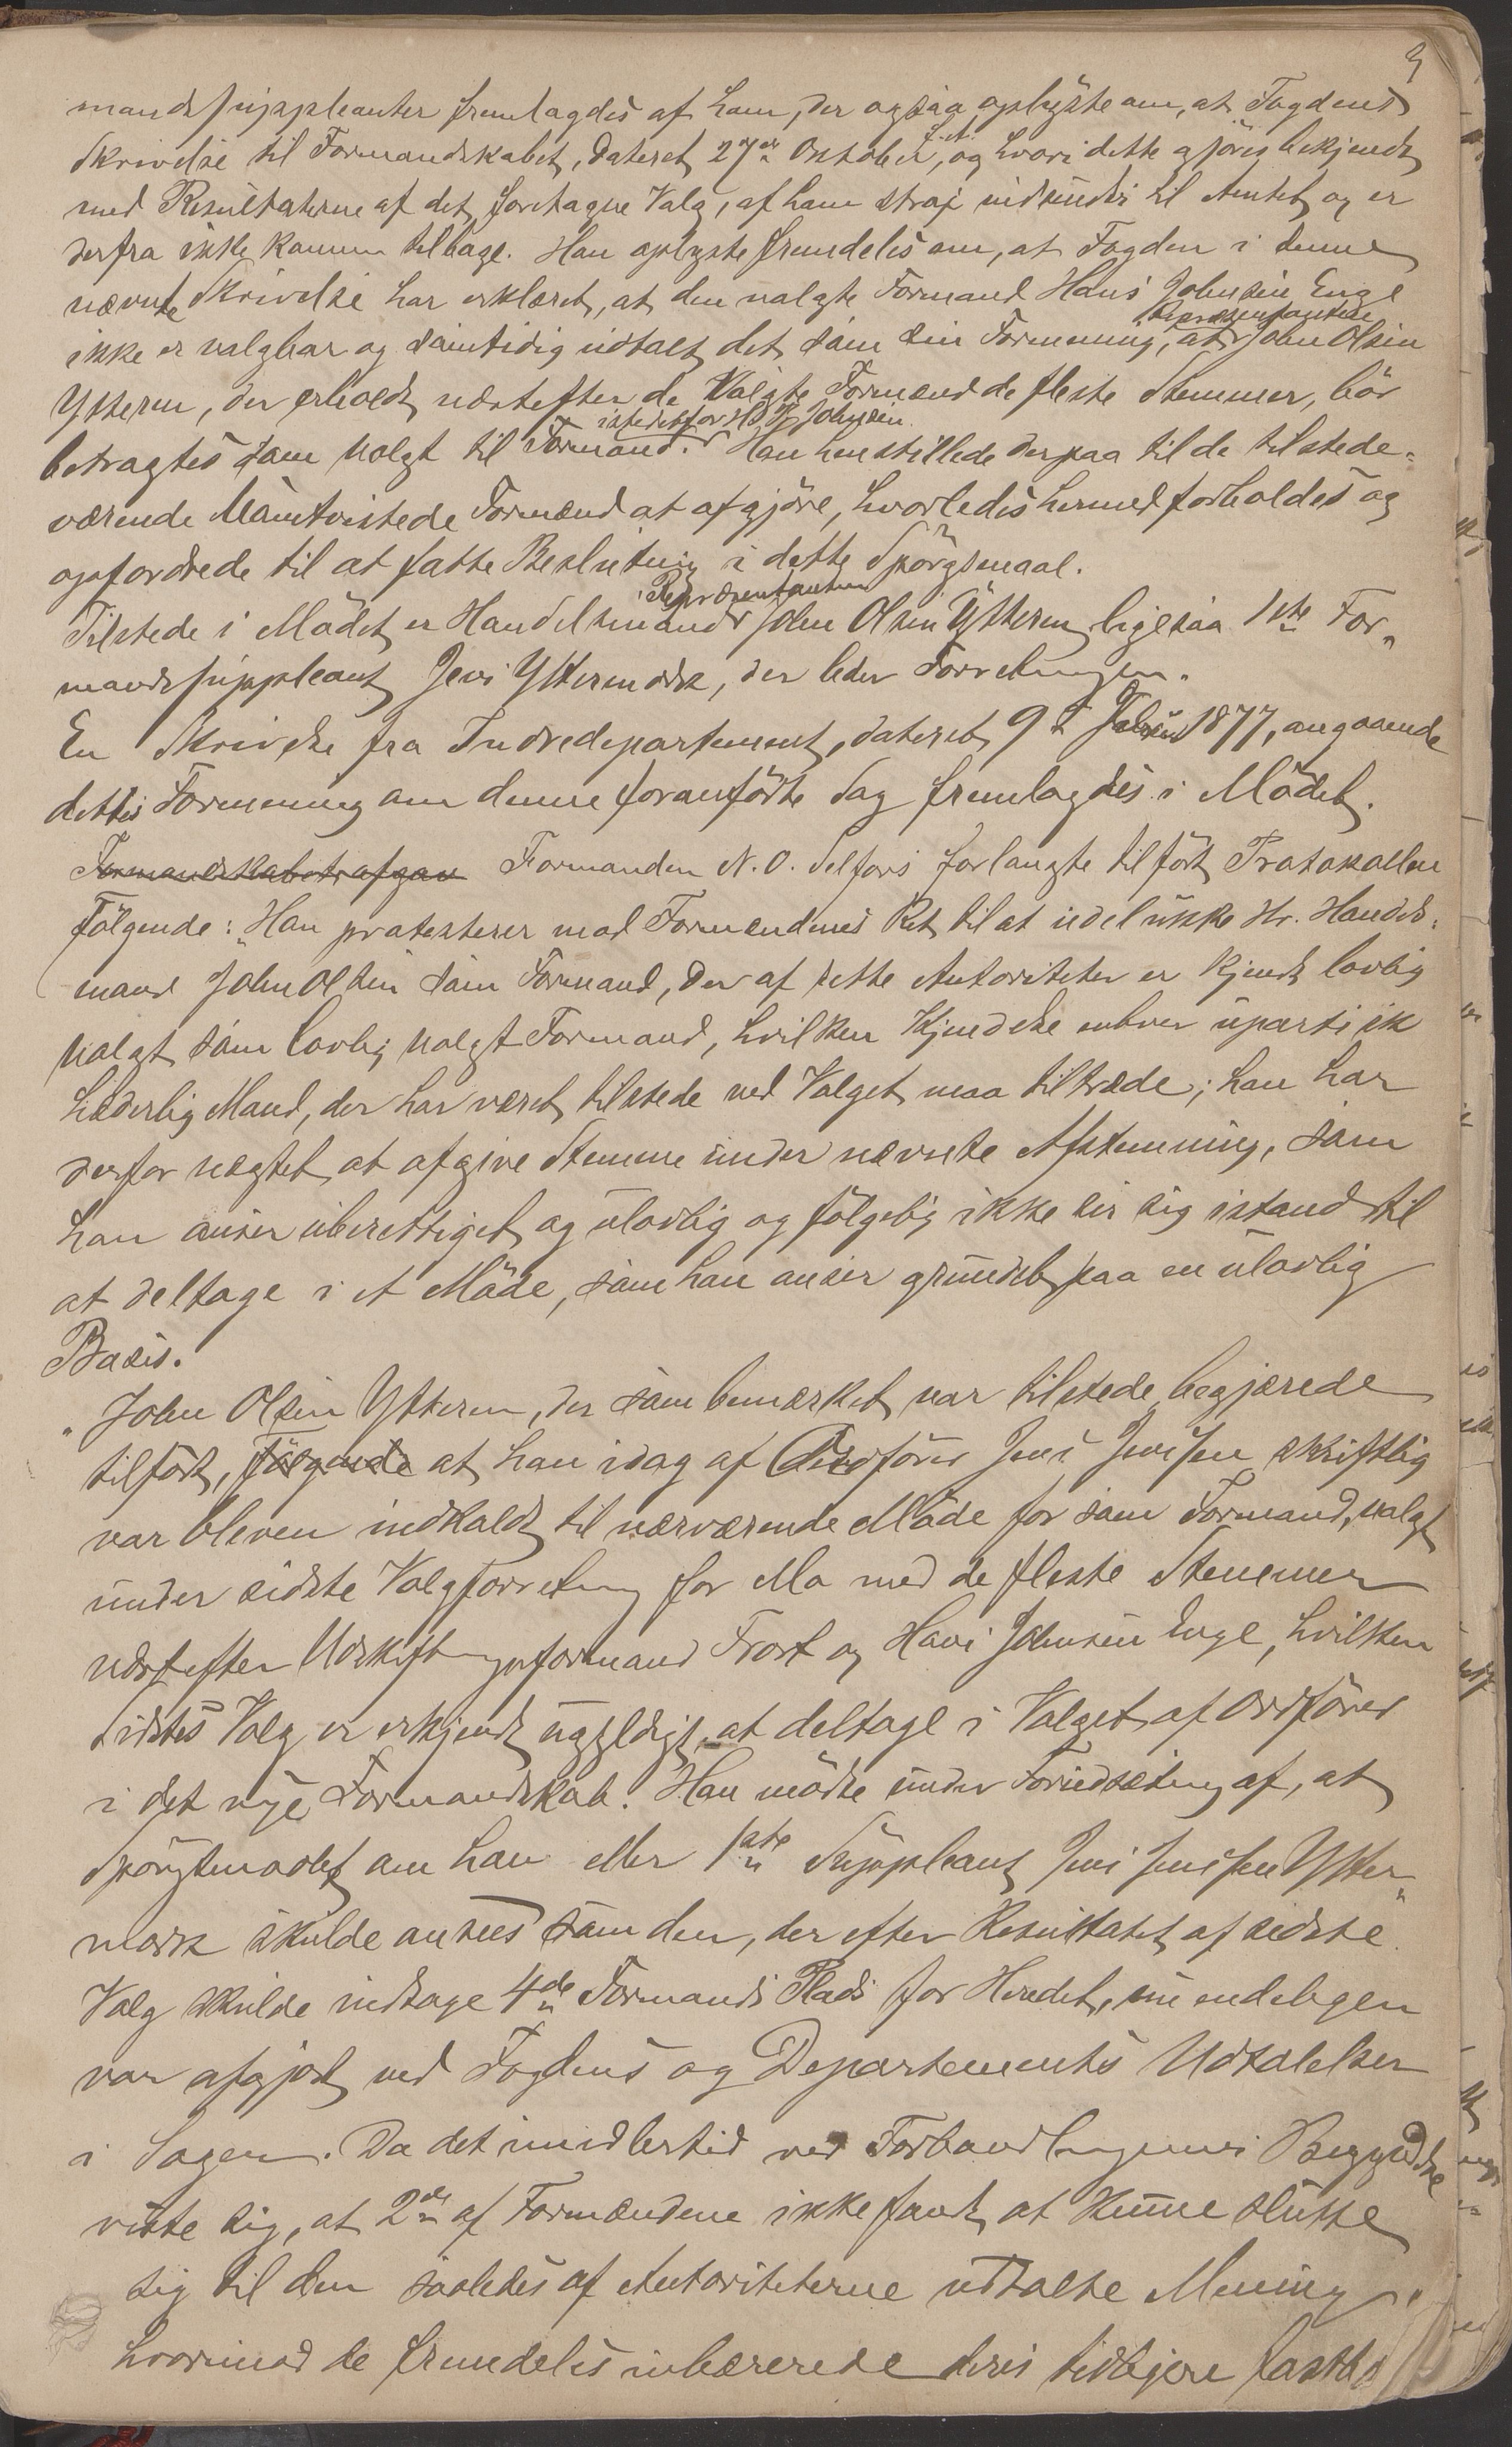 9
mandssuppleanter fremlagdes af ham, der ogsaa oplyste om, at Fogdens
Skrivelse til Formandskabet, dateret 27de Oktober f. A., og hvori dette gjøres bekjendt
med Resultaterne af det foretagne Valg, af ham strax indsendtes til Amtet og er
derfra ikke kommen tilbage. Han oplyste fremdeles om, at Fogden i denne
nævnte Skrivelse har erklæret, at den valgte Formand Hans Johnsen Enge
ikke er valgbar og samtidig udtalt det som sin Formening, at Repræsentanten John Olsen
Ytteren, der erholdt næstefter de Valgte Formænd de fleste Stemmer, bör
betragtes som valgt til Formand istedetfor H. Johnsen. Han henstillede derpaa til de tilstede-
værende Mæntvistede Formænd at afgjöre, hvorledes hermed forholdes og
opfordrede til at fatte Beslutning i dette Spörgsmaal.
Tilstede i Mödet er Handelsmand Repræsentanten John Olsen Ytteren, ligesaa 1ste For-
mandssuppleant Jens Yttermork, der leder Forretningen.
En Skrivelse fra Indredepartement, dateret 9de Febru 1877, angaaende
dettes Formening om denne foranförte Sag fremlagdes i Mödet.
Formandskabet afgav Formanden N. O. Selfors forlangte tilfört Protokollen
Fölgende: "Han protesterer mod Formændenes Ret til at udelukke Hr. Handels-
mand John Olsen som Formand, der af dette Autoriteter er kjendt lovlig
valgt som lovlig valgt Formand, hvilken Kjendelse enhver upartisk
hæderlig Mand, der har været tilstede ved Valget maa tiltræde; han har
derfor nægtet at afgive Stemme under nævnte Afstemning, som
han anser uberettiget og ulovlig og fölgelig ikke ser sig istand til
at deltage i et Möde, som han anser grundet paa en ulovlig
Basis.
"John Olsen Ytteren, der som bemærket var tilstede, begjærede
tilfört, fölgende at han idag af Ordförer Jens Jensen skriftlig
var bleven indkaldt til nærværende Möde for som Formand, valgt
under sidste Valgforretning for Mo med de fleste Stemmer
næstefter Udskiftningsformand Frost og Hans Johnsen Enge, hvilken
sidstes Valg er erkjendt ugyldigt, at deltage i Valget af Ordförer
i det nye Formandskab. Han mödte under Forudsætning af, at
Spörgsmaalet om han eller 1ste Suppleant Jens Jensen Ytter-
mork skulde ansees som den, der efter Resultatet af sidste
Valg skulde indtage 4de Formands Plads for Herredet, nu endeligen
var afgjort ved Fogdens og Departements Udtalelser
i Sagen. Da det imidlertid ved Forhandlingernes Begyndelse
viste sig, at 2de af Formændene ikke fandt at kunne slutte
sig til den saaledes af Autoriteterne udtalte Mening,
hvorimod de fremdeles urbærerede deres tidligere fattede